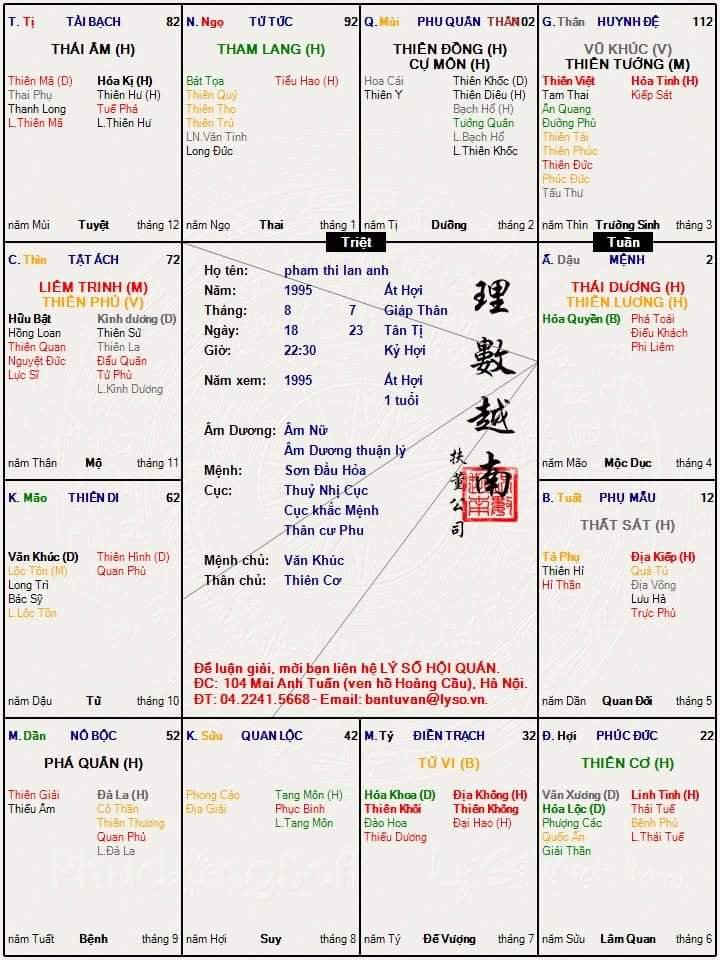 T. Tị TÀI BẠCH 82
THÁI ÂM (H)
Thiên Mã (D) Hóa Kị (H)
Thai Phụ Thiên Hư (H)
Thanh Long Tuế Phá
L.Thiên Mã L.Thiên Hư
năm Mùi Tuyệt tháng 12
N. Ngọ TỬ TỨC 92
THAM LANG (H)
Bát Tọa Tiểu Hao (H)
Thiên Quý
Thiên Thọ
Thiên Trù
LN.Văn Tinh
Long Đức
năm Ngọ Thai tháng 1
Q. Mùi PHU QUÂN THÂN 102
THIÊN ĐỒNG (H)
CỰ MÔN (H)
Hoa Cái Thiên Khốc (D)
Thiên Y Thiên Diêu (H)
Bạch Hổ (H)
Tướng Quân
L.Bạch Hổ
L.Thiên Khốc
năm Tị Dưỡng tháng 2
G. Thân HUYNH ĐỆ 112
VŨ KHÚC (V)
THIÊN TƯỚNG (M)
Thiên Việt Hỏa Tinh (H)
Tam Thai Kiếp Sát
Ân Quang
Đường Phù
Thiên Tài
Thiên Phúc
Thiên Đức
Phúc Đức
Tấu Thư
năm Thìn Trường Sinh tháng 3
Triệt
Tuần
C. Thìn TẬT ÁCH 72
LIÊM TRINH (M)
THIÊN PHỦ (V)
Hữu Bật Kình dương (D)
Hồng Loan Thiên Sứ
Thiên Quan Thiên La
Nguyệt Đức Đẩu Quân
Lực Sĩ Tử Phù
L.Kình Dương
năm Thân Mộ tháng 11
Họ tên: pham thi lan anh
Năm: 1995 Ất Hợi
Tháng: 8 7 Giáp Thân
Ngày: 18 23 Tân Tị
Giờ: 22:30 Kỷ Hợi
Năm xem: 1995 Ất Hợi
1 tuổi
Âm Dương: Âm Nữ
Âm Dương thuận lý
Mệnh: Sơn Đầu Hỏa
Cục: Thuỷ Nhị Cục
Cục khắc Mệnh
Thân cư Phu
Mệnh chủ: Văn Khúc
Thân chủ: Thiên Cơ
理數越南
扶董公司
Để luận giải, mời bạn liên hệ LÝ SỐ HỘI QUÁN.
ĐC: 104 Mai Anh Tuấn (ven hồ Hoàng Cầu), Hà Nội.
ĐT: 04.2241.5668 - Email: bantuvan@lyso.vn.
Ấ. Dậu MỆNH 2
THÁI DƯƠNG (H)
THIÊN LƯƠNG (H)
Hóa Quyền (B) Phá Toái
Điếu Khách
Phi Liêm
năm Mão Mộc Dục tháng 4
K. Mão THIÊN DI 62
Văn Khúc (D) Thiên Hình (D)
Lộc Tồn (M) Quan Phù
Long Trì
Bác Sỹ
L.Lộc Tồn
năm Dậu Tử tháng 10
B. Tuất PHỤ MẪU 12
THẤT SÁT (H)
Tả Phụ Địa Kiếp (H)
Thiên Hỉ Quả Tú
Hỉ Thần Địa Võng
Lưu Hà
Trực Phù
năm Dần Quan Đới tháng 5
M. Dần NÔ BỘC 52
PHÁ QUÂN (H)
Thiên Giải Đà La (H)
Thiếu Âm Cô Thần
Thiên Thương
Quan Phủ
L.Đà La
năm Tuất Bệnh tháng 9
K. Sửu QUAN LỘC 42
Phong Cáo Tang Môn (H)
Địa Giải Phục Binh
L.Tang Môn
năm Hợi Suy tháng 8
M. Tý ĐIỀN TRẠCH 32
TỬ VI (B)
Hóa Khoa (D) Địa Không (H)
Thiên Khôi Thiên Không
Đào Hoa Đại Hao (H)
Thiếu Dương
năm Tý Đế Vượng tháng 7
Đ. Hợi PHÚC ĐỨC 22
THIÊN CƠ (H)
Văn Xương (D) Linh Tinh (H)
Hóa Lộc (D) Thái Tuế
Phượng Các Bệnh Phù
Quốc Ấn L.Thái Tuế
Giải Thần
năm Sửu Lâm Quan tháng 6